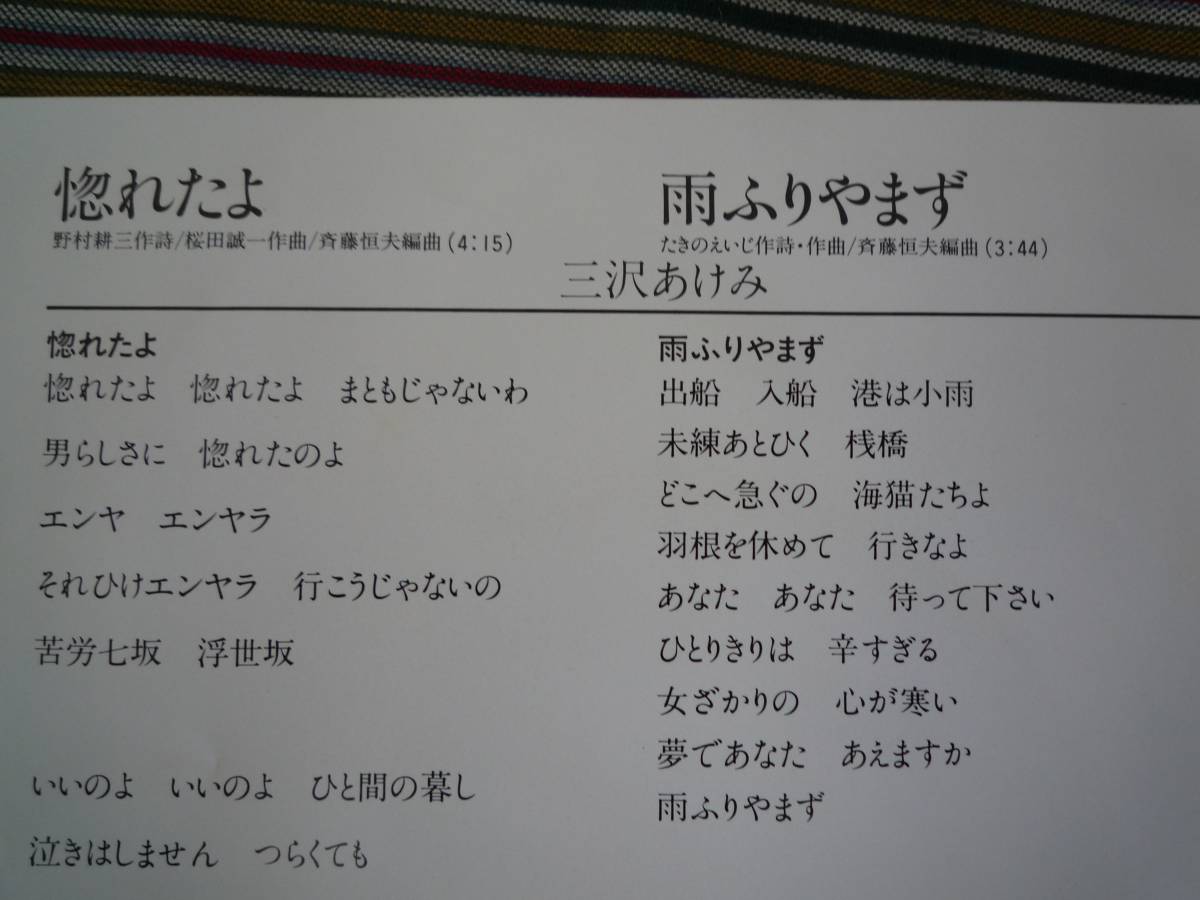 惚れたよ
野村耕三作詩/桜田誠一作曲/斉藤恒夫編曲(4:15)
雨ふりやまず
たきのえいじ作詩・作曲/斉藤恒夫編曲(3:44)
三沢あけみ
惚れたよ
惚れたよ　惚れたよ　まともじゃないわ
男らしさに　惚れたのよ
エンヤ　エンヤラ
それひけエンヤラ　行こうじゃないの
苦労七坂　浮世坂
いいのよ　いいのよ　ひと間の暮し
泣きはしません　つらくても
雨ふりやまず
出船　入船　港は小雨
未練あとひく　桟橋
どこへ急ぐの　海猫たちよ
羽根を休めて　行きなよ
あなた　あなた　待って下さい
ひとりきりは　辛すぎる
女ざかりの　心が寒い
夢であなた　あえますか
雨ふりやまず